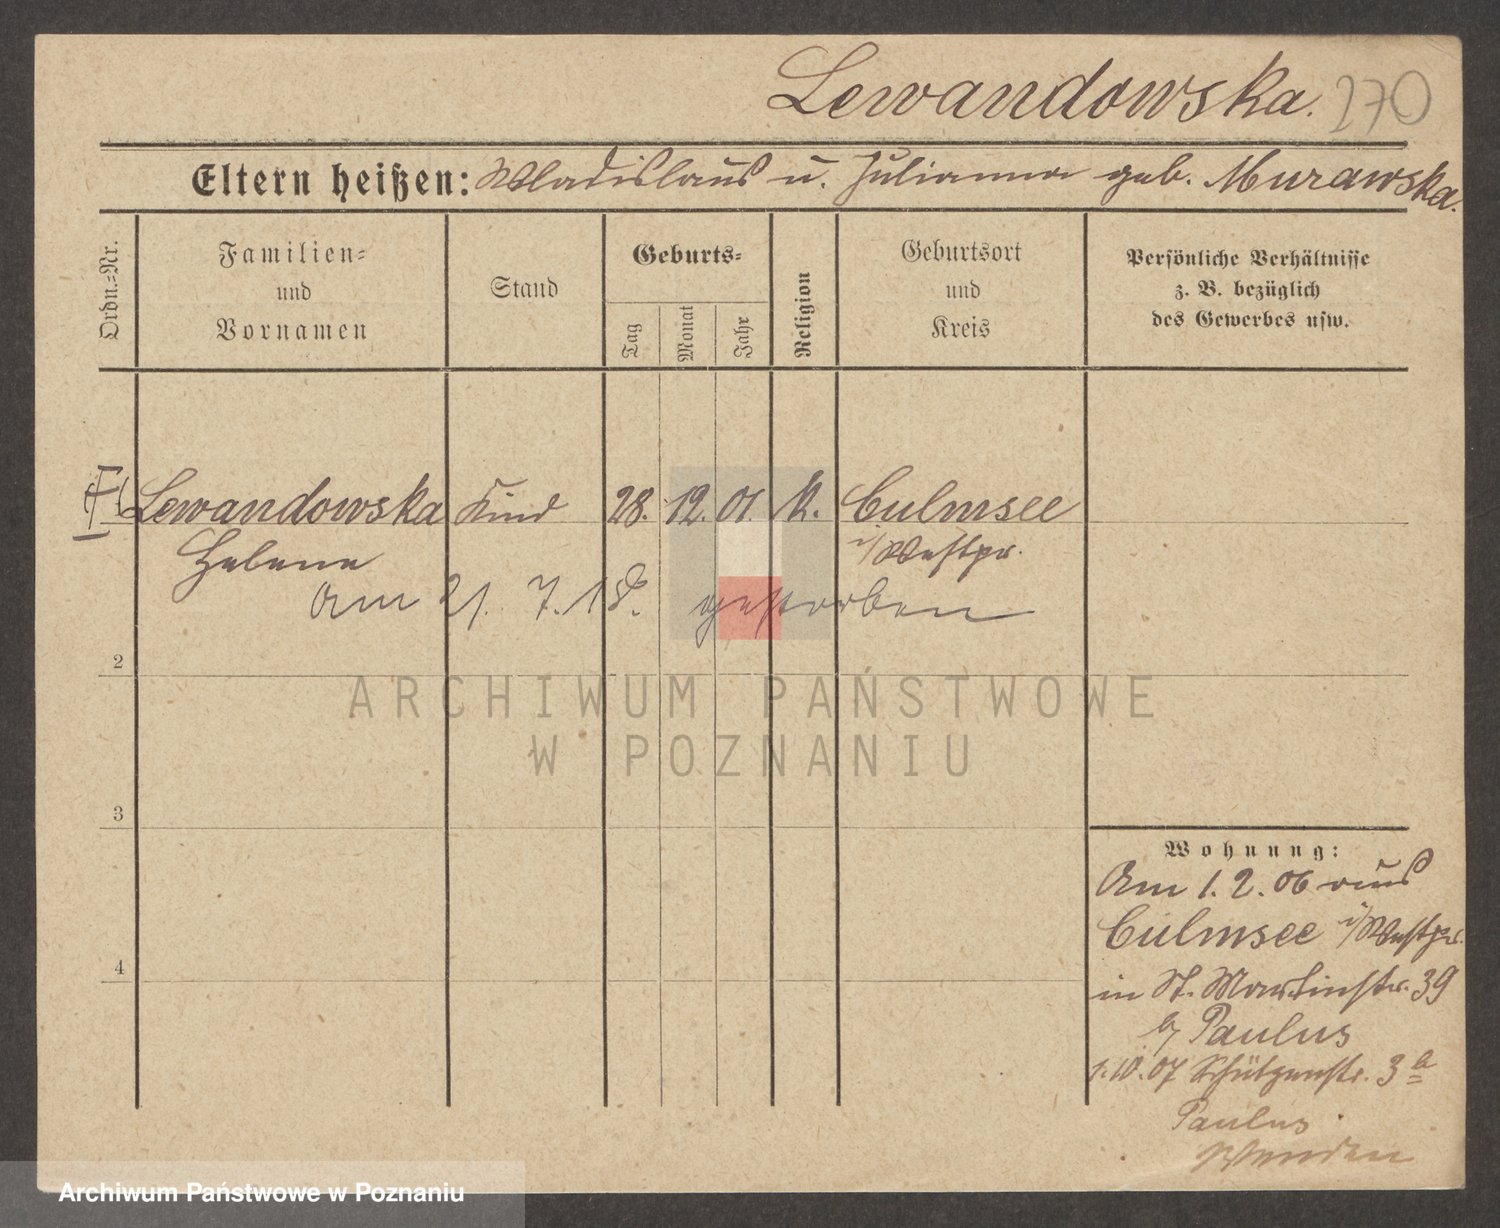 Lewandowska. 270
Eltern heißen: Wladislaus u. Julianna geb. Murawska.
Ordn.-Nr.
Familien-
und
Vornamen
Stand
Geburts-
Tag
Monat
Jahr
Religion
Geburtsort
und
Kreis
Persönliche Verhältnisse
z. B. bezüglich
des Gewerbes usw.
Lewandowska Kind 28. 12. 01. k. Culmsee
Helene i/Westpr.
Am 21. 7. 18. gestorben
2
ARCHIWUM PAŃSTWOWE
W POZNANIU
3
Wohnung:
Am 1. 2. 06 aus
Culmsee i/Westpr.
in St. Martinstr. 39
b/ Paulus
1.10.07 Schützenstr. 3a
Paulus
Wenden
4
Archiwum Państwowe w Poznaniu